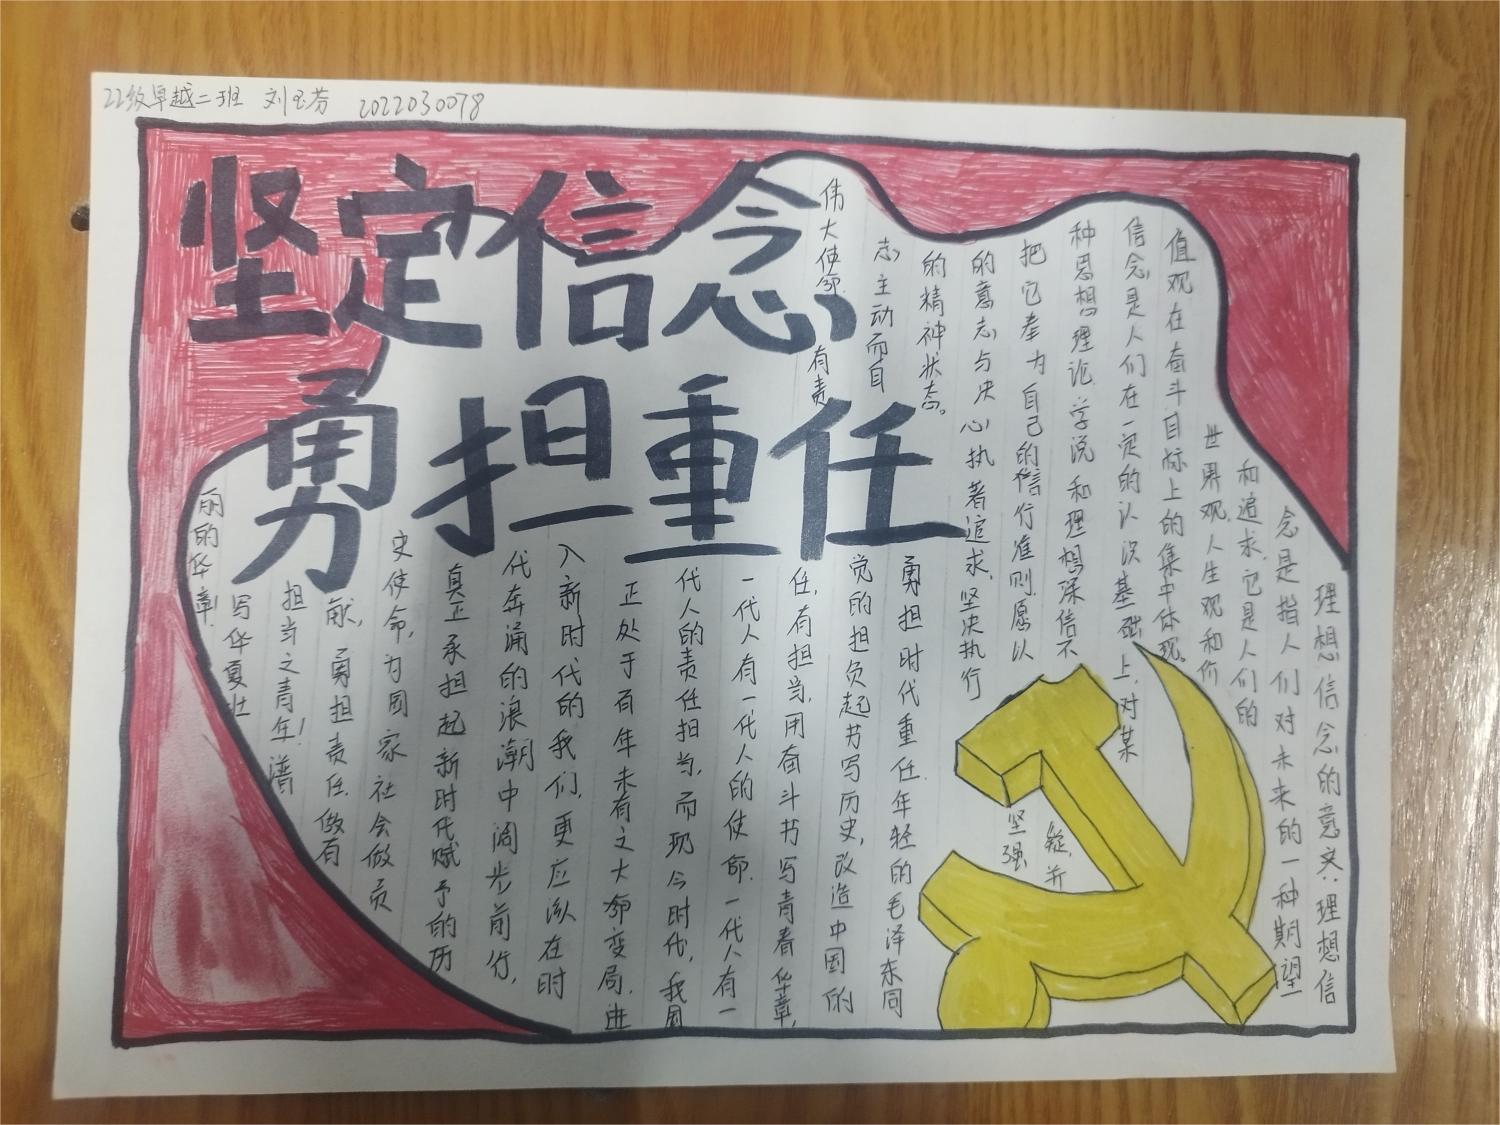 22级卓越二班 刘玉芬 2022030078
坚定信念
勇担重任
理想信念的意义:理想信
念是指人们对未来的一种期望
和追求,它是人们的
世界观、人生观和价
值观在奋斗目标上的集中体现。
信念是人们在一定的认识基础上,对某
种思想理论、学说和理想深信不
疑,并
把它奉为自己的信行准则,愿以
坚强
的意志与决心执著追求、坚决执行
的精神状态。
勇担时代重任,年轻的毛泽东同
志,主动而自
觉的担负起书写历史,改造中国的
伟大使命,有责
任,有担当,用奋斗书写青春华章,
一代人有一代人的使命,一代人有一
代人的责任担当,而现今时代,我国
正处于百年未有之大变局,进
入新时代的我们,更应该在时
代奔涌的浪潮中阔步前行,
真正承担起新时代赋予的历
史使命,为国家社会做贡
献,勇担责任,做有
担当之青年!谱
写华夏壮
丽的华章!